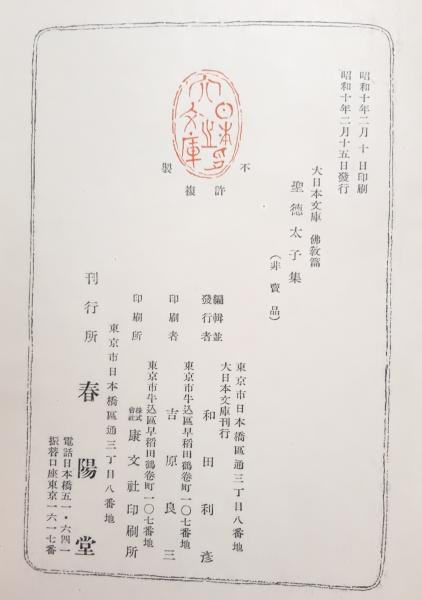 昭和十年二月十日印刷
昭和十年二月十五日發行
大日本文庫 佛敎篇
聖德太子集
(非賣品)
不許複製
大日本文庫
編輯並發行者
東京市日本橋區通三丁目八番地
大日本文庫刊行
和田利彥
印刷者
東京市牛込區早稻田鶴卷町一〇七番地
吉原良三
印刷所
東京市牛込區早稻田鶴卷町一〇七番地
株式會社 康文社印刷所
東京市日本橋區通三丁目八番地
刊行所 春陽堂
電話日本橋五一・六四一
振替口座東京一六一七番